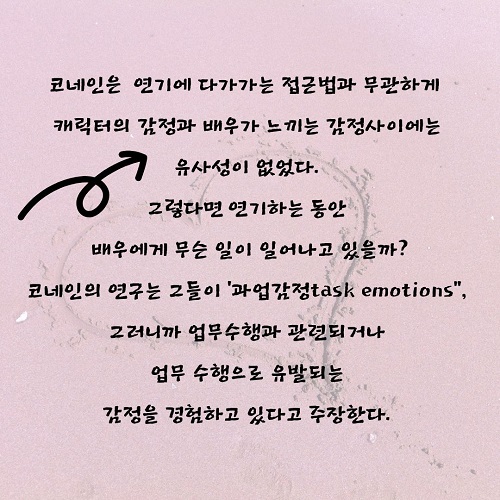 코네인은 연기에 다가가는 접근법과 무관하게
캐릭터의 감정과 배우가 느끼는 감정사이에는
유사성이 없었다.
그렇다면 연기하는 동안
배우에게 무슨 일이 일어나고 있을까?
코네인의 연구는 그들이 '과업감정task emotions",
그러니까 업무수행과 관련되거나
업무 수행으로 유발되는
감정을 경험하고 있다고 주장한다.